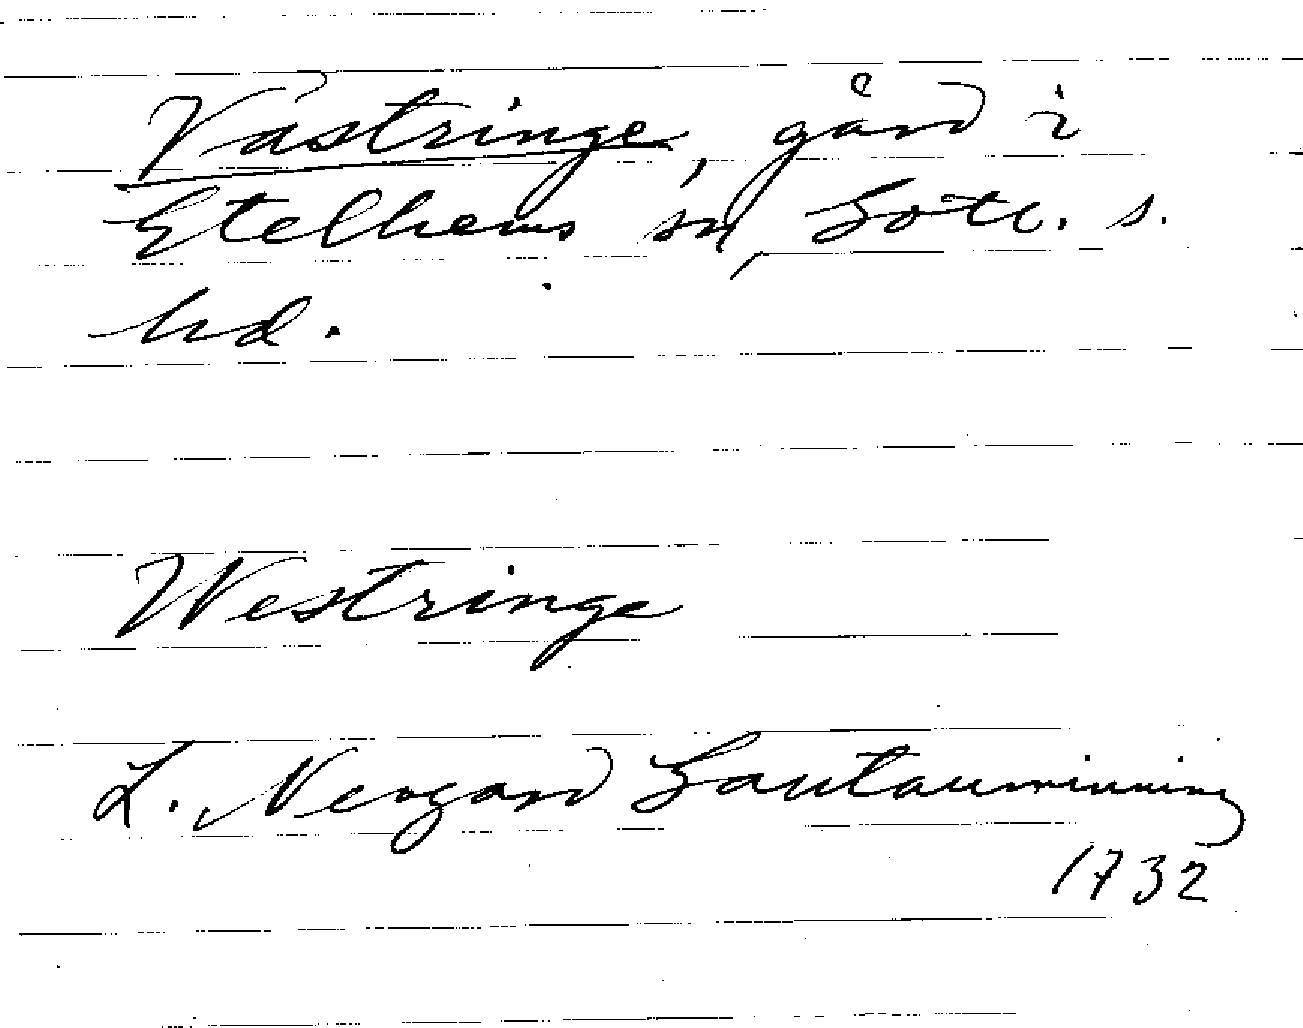 Västringe, gård i
Etelhems sn, Gotl. s.
hd.
Westringe
L. Neogard Gautauminning
1732